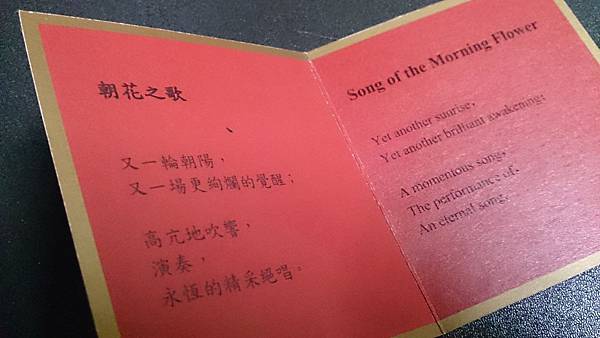 朝花之歌
又一輪朝陽，
又一場更絢爛的覺醒；
高亢地吹響，
演奏，
永恆的精采絕唱。
Song of the Morning Flower
Yet another sunrise,
Yet another brilliant awakening;
A momentous song,
The performance of,
An eternal song.